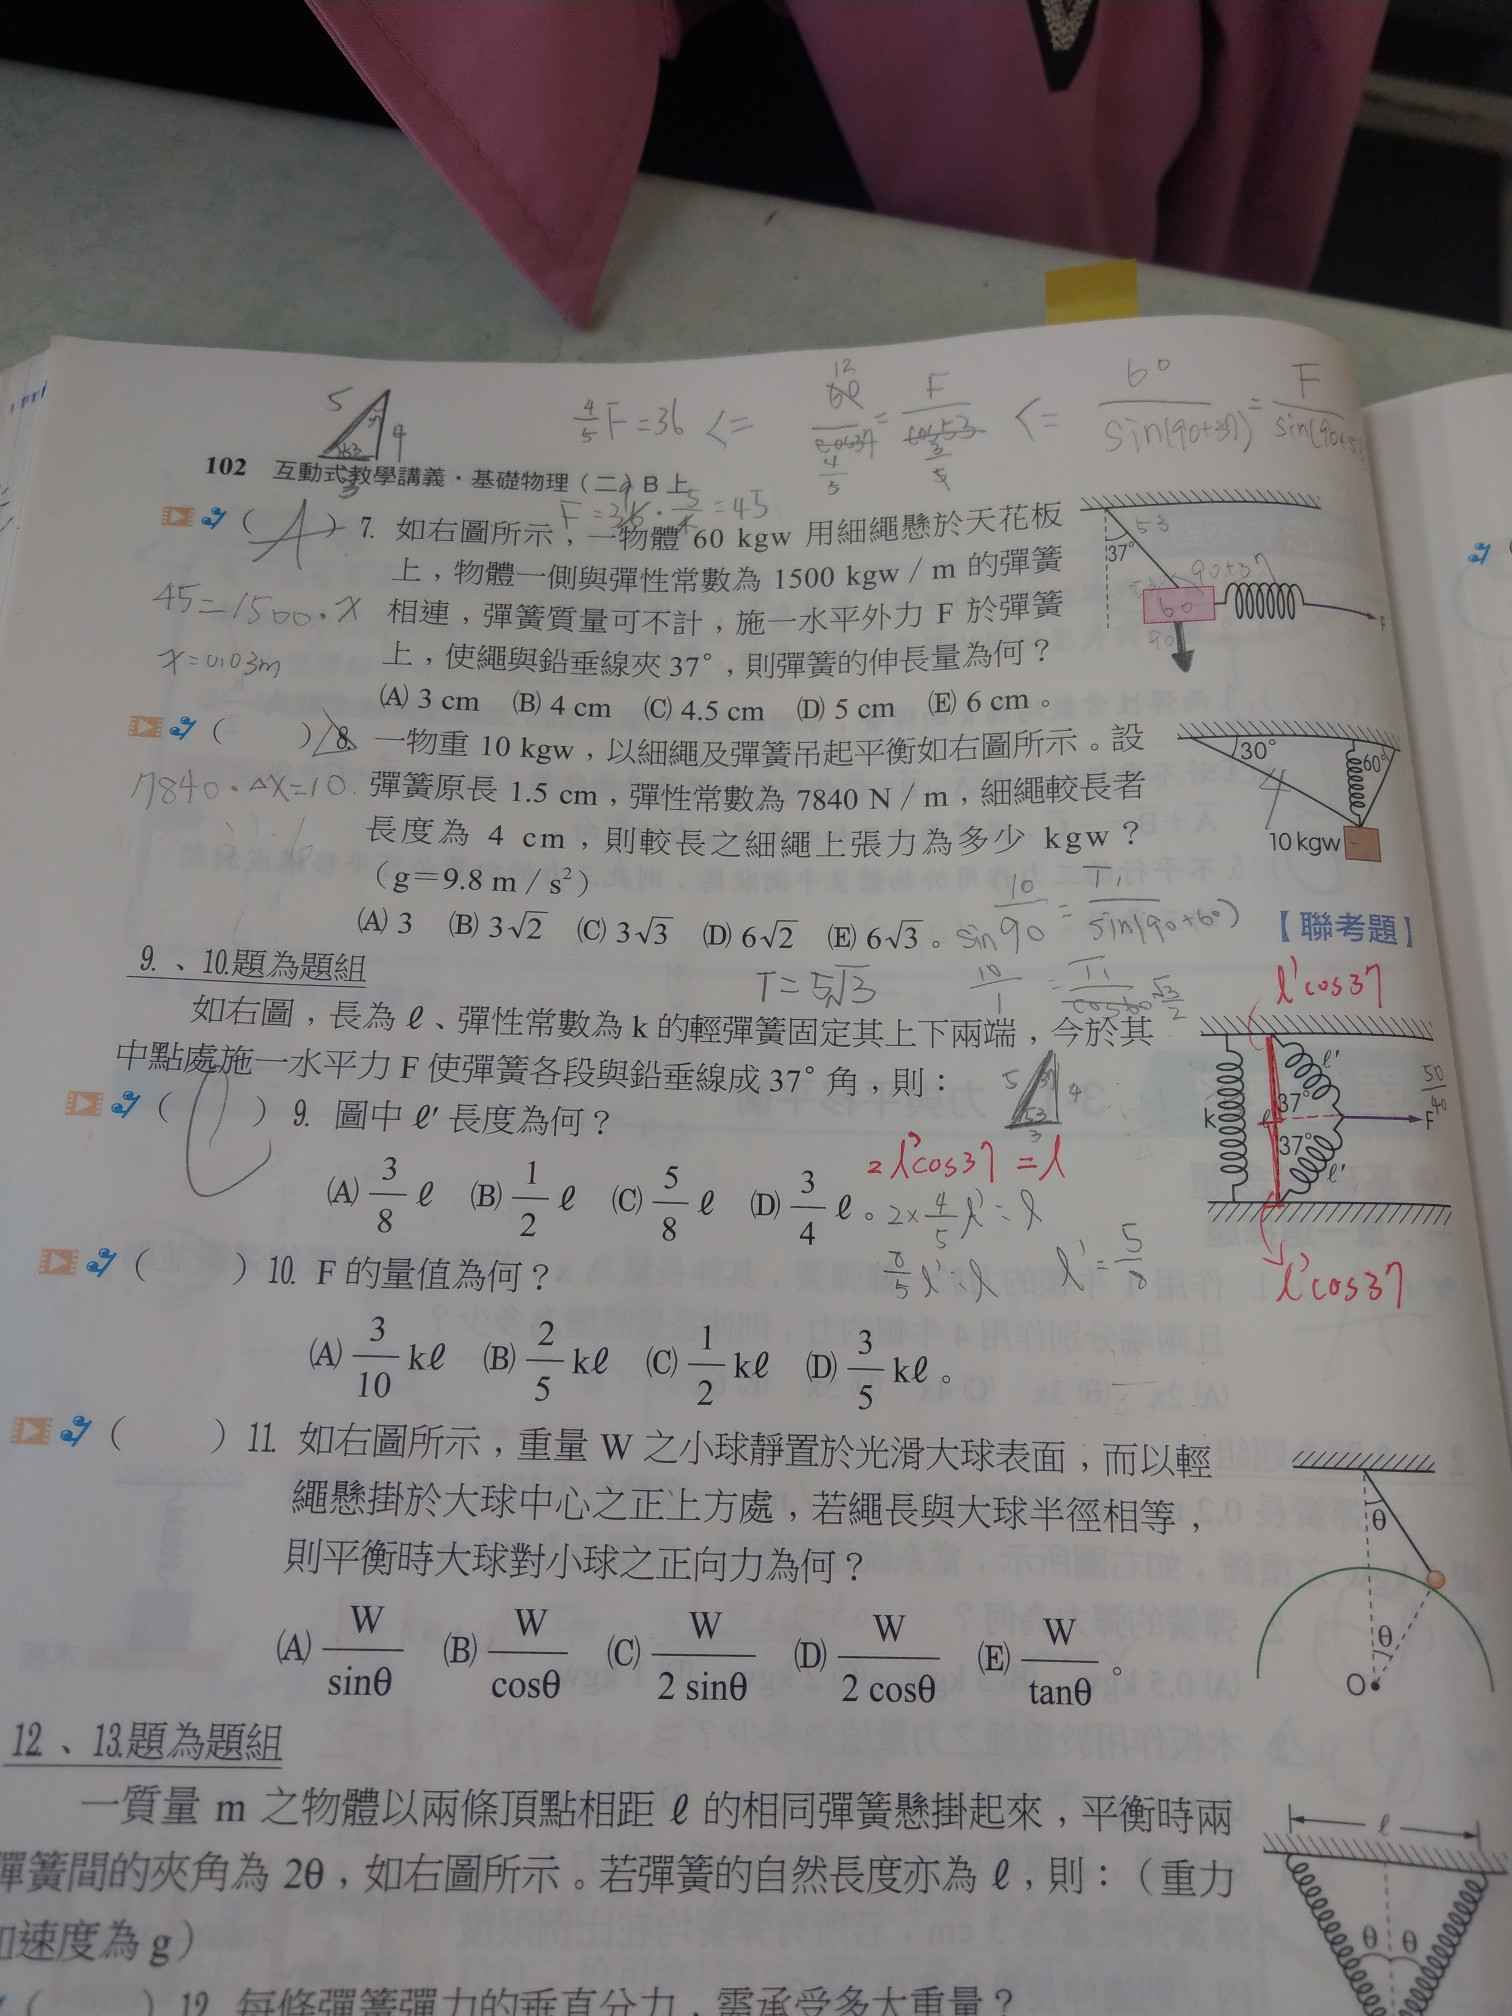 5
4
3
37
53
4/5 F = 36 <= 12 60/cos37 4/5 = F/cos53 3/5 <= 60/sin(90+37) = F/sin(90+53)
102 互動式教學講義・基礎物理(二)B上
F = 36 · 5/4 = 45
(A) 7. 如右圖所示，一物體 60 kgw 用細繩懸於天花板
上，物體一側與彈性常數為 1500 kgw / m 的彈簧
相連，彈簧質量可不計，施一水平外力 F 於彈簧
上，使繩與鉛垂線夾 37°，則彈簧的伸長量為何？
(A) 3 cm (B) 4 cm (C) 4.5 cm (D) 5 cm (E) 6 cm。
45=1500·x
x=0.03m
37°
53
90+37
60
90
F
( ) 8. 一物重 10 kgw，以細繩及彈簧吊起平衡如右圖所示。設
彈簧原長 1.5 cm，彈性常數為 7840 N / m，細繩較長者
長度為 4 cm，則較長之細繩上張力為多少 kgw？
(g＝9.8 m / s²)
(A) 3 (B) 3√2 (C) 3√3 (D) 6√2 (E) 6√3。
【聯考題】
7840·Δx=10
30°
60°
4
10 kgw
10/sin90 = T₁/sin(90+60)
10/1 = T₁/cos60 √3/2
T=5√3
9.、10.題為題組
如右圖，長為 ℓ、彈性常數為 k 的輕彈簧固定其上下兩端，今於其
中點處施一水平力 F 使彈簧各段與鉛垂線成 37° 角，則：
( ) 9. 圖中 ℓ′ 長度為何？
(A) 3/8 ℓ (B) 1/2 ℓ (C) 5/8 ℓ (D) 3/4 ℓ。
5
37
4
53
3
2ℓ'cos37=ℓ
2×4/5 ℓ'=ℓ
8/5 ℓ'=ℓ ℓ'=5/8
ℓ'cos37
k
ℓ
ℓ′
37°
37°
ℓ′
F
50/40
ℓ'cos37
( ) 10. F 的量值為何？
(A) 3/10 kℓ (B) 2/5 kℓ (C) 1/2 kℓ (D) 3/5 kℓ。
( ) 11. 如右圖所示，重量 W 之小球靜置於光滑大球表面，而以輕
繩懸掛於大球中心之正上方處，若繩長與大球半徑相等，
則平衡時大球對小球之正向力為何？
(A) W/sinθ (B) W/cosθ (C) W/2 sinθ (D) W/2 cosθ (E) W/tanθ。
θ
θ
O
12.、13.題為題組
一質量 m 之物體以兩條頂點相距 ℓ 的相同彈簧懸掛起來，平衡時兩
彈簧間的夾角為 2θ，如右圖所示。若彈簧的自然長度亦為 ℓ，則：(重力
加速度為 g)
ℓ
θ θ
( ) 12. 每條彈簧彈力的垂直分力，需承受多大重量？